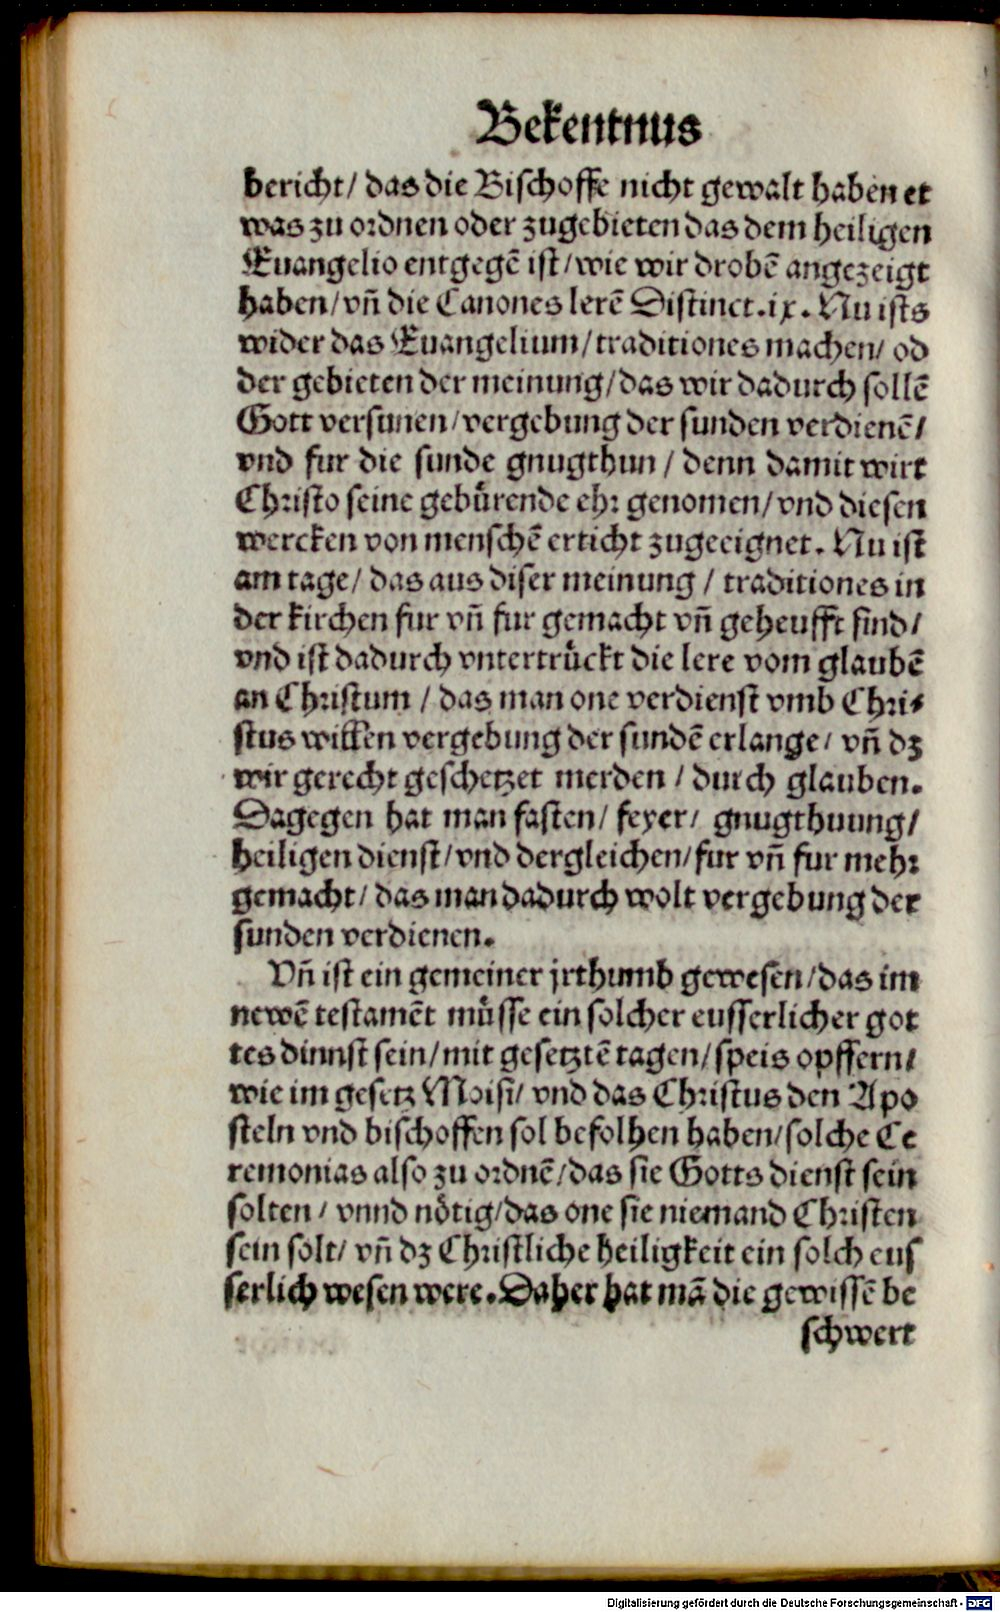 Bekentnus
bericht/ das die Bischoffe nicht gewalt haben et
was zu ordnen oder zugebieten das dem heiligen
Euangelio entgegē ist/ wie wir drobē angezeigt
haben/ vñ die Canones lerē Distinct. ix. Nu ists
wider das Euangelium/ traditiones machen/ od
der gebieten der meinung/ das wir dadurch sollē
Gott versunen/ vergebung der sunden verdienē/
vnd fur die sunde gnugthun / denn damit wirt
Christo seine gebuͤrende ehr genomen/ vnd diesen
wercken von menschē erticht zugeeignet. Nu ist
am tage/ das aus diser meinung / traditiones in
der kirchen fur vñ fur gemacht vñ geheufft sind/
vnd ist dadurch vntertruͤckt die lere vom glaubē
an Christum / das man one verdienst vmb Chri⸗
stus willen vergebung der sundē erlange/ vñ dz
wir gerecht geschetzet merden / durch glauben.
Dagegen hat man fasten/ feyer/ gnugthuung/
heiligen dienst/ vnd dergleichen/ fur vñ fur mehr
gemacht/ das man dadurch wolt vergebung der
sunden verdienen.
Vñ ist ein gemeiner jrthumb gewesen/ das im
newē testamēt muͤsse ein solcher eusserlicher got
tes dinnst sein/ mit gesetztē tagen/ speis opffern/
wie im gesetz Moisi/ vnd das Christus den Apo
steln vnd bischoffen sol befolhen haben/ solche Ce
remonias also zu ordnē/ das sie Gotts dienst sein
solten/ vnnd noͤtig/ das one sie niemand Christen
sein solt/ vñ dz Christliche heiligkeit ein solch eus
serlich wesen were. Daher hat mā die gewissē be
schwert
Digitalisierung gefördert durch die Deutsche Forschungsgemeinschaft - DFG